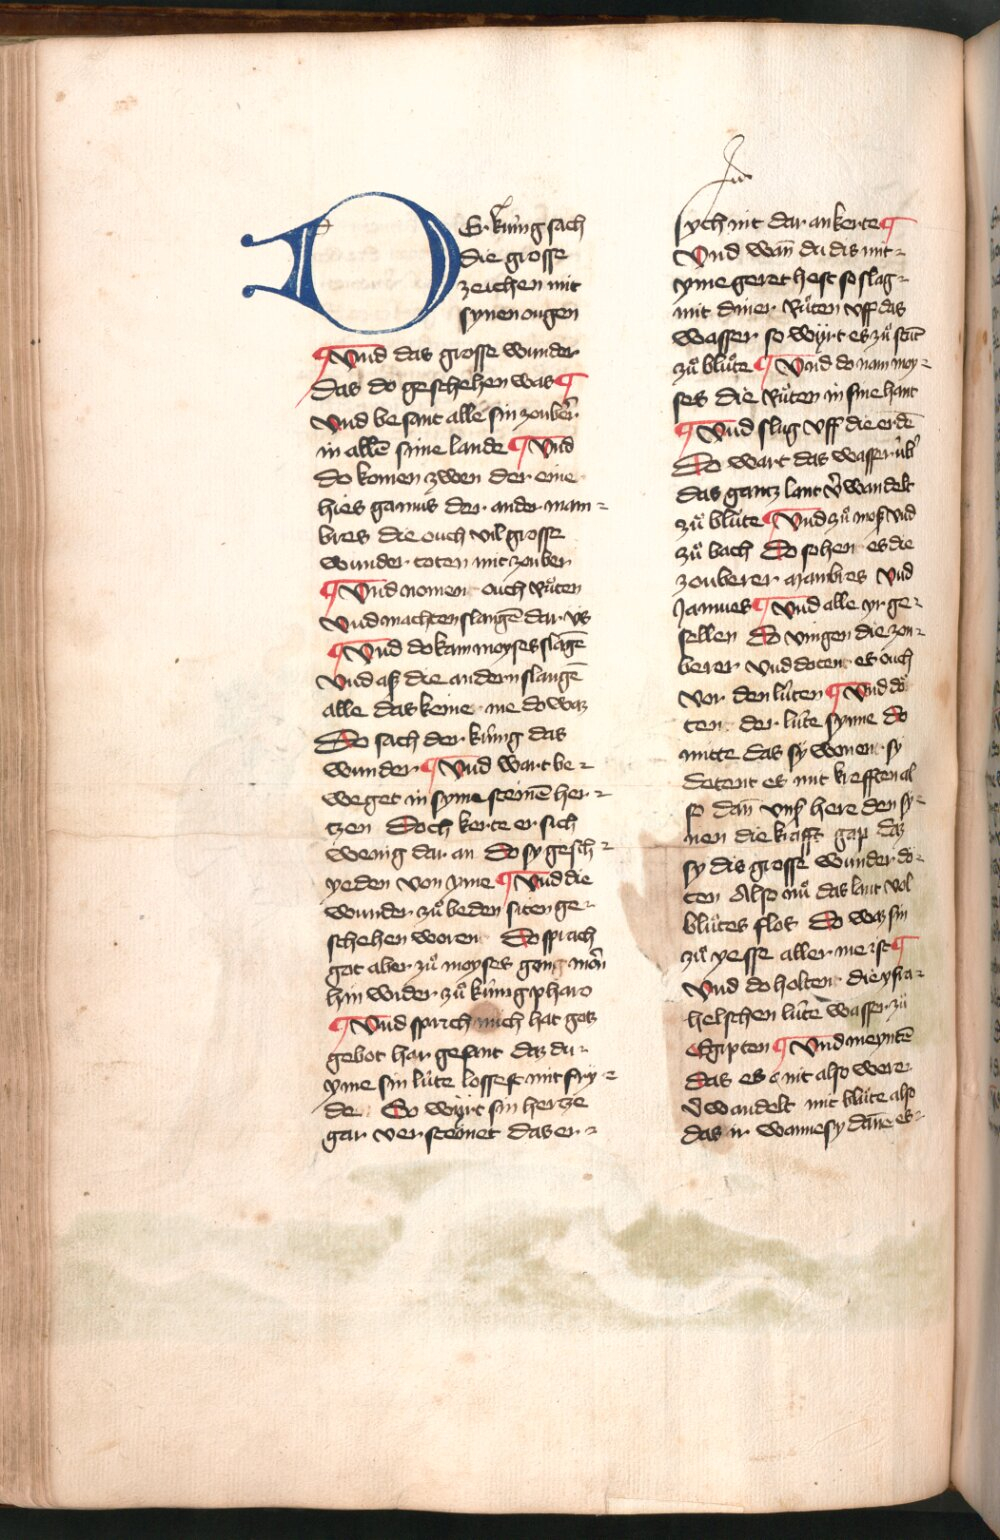 DEr kúnig sach
die grosse
zeichen mit
synen ougen
¶ Vnd das grosse wunder
das do geschehen was ¶
Vnd besant alle sin zoub̄er
in allē sime lande ¶ Vnd
do komen zwen der eine
hies gamus der ander mam⸗
bres die ouch vil grosse
wunder toten mit zouber
¶ Vnd nomen ouch Růten
Vnd machten slangē dar vs
¶ Vnd do kam moyses slāge
Vnd aß die andern slangē
alle das keine me do waz
Do sach der kúnig das
wunder ¶ Vnd wart be⸗
weget in syme steinē her⸗
tzen Doch kerte er sich
wenig dar an Do sy gesch⸗
yeden von yme ¶ Vnd die
wunder zů beden siten ge⸗
schehen woren Do sprach
got aber zů moyses gong morn
hin wider zů kúnig pharo
¶ Vnd sprich mich hat gotz
gebot har gesant daz du
yme sin lúte lossest mit fry⸗
de So wyrt sin hertze
gar versteinet das er⸗
sych nit dar an kerte ¶
Vnd wan̄ du dis mit⸗
yme geret hest so slag⸗
mit diner Růten vff das
wasser so wyrt es zů stūt
zů blůte ¶ Vnd do nam moy⸗
ses die Růten in sine hant
¶ Vnd slug vff die erdē
Do wart das wasser úb̄
das gantz lant v̄wandelt
zů blůte ¶ Vnd zů moß vnd
zů bach Do sohen es die
zouberer mambres Vnd
Jamues ¶ Vnd alle yr ge⸗
sellen Do vingen die zou⸗
berer vnd doten es ouch
vor den lúten ¶ Vnd dö
ten der lúte synne do
mitte das sy wonen sy
detent es mit krefften al
so dan̄ vnß here den sy⸗
nen die krafft gap daz
sy dis grosse wunder do⸗
ten Also nů das lant vol
blůtes flos Do waz sin
zů yesse aller meist ¶
Vnd do holten die ysra⸗
helschen lúte wasser zů
Egipten ¶ Vnd meyntē
das es nit also were
v̄wandelt mit blůte also
das ir wanne sy dāne es⸗